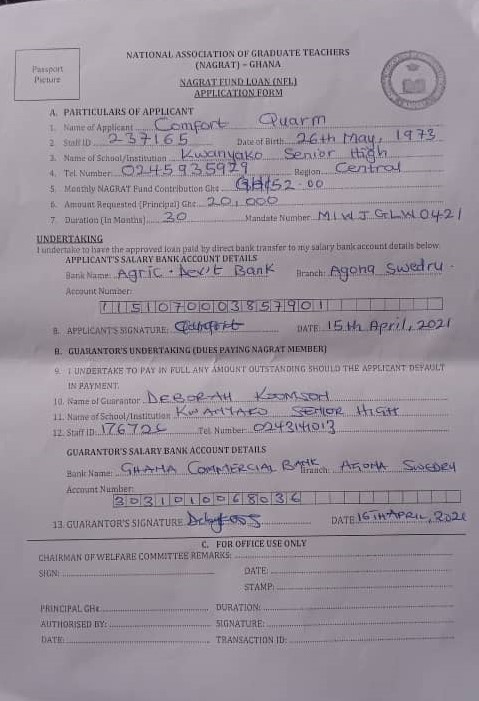 NATIONAL ASSOCIATION OF GRADUATE TEACHERS
(NAGRAT) – GHANA
Passport
Picture
NAGRAT FUND LOAN (NFL)
APPLICATION FORM
A. PARTICULARS OF APPLICANT
1. Name of Applicant Comfort Quarm
2. Staff ID 237165 Date of Birth 26th May, 1973
3. Name of School/Institution Kwanyako Senior High
4. Tel Number 0245935929 Region Central
5. Monthly NAGRAT Fund Contribution Gh¢ GH¢52.00
6. Amount Requested (Principal) Gh¢ 20,000
7. Duration (In Months) 30 Mandate Number MIWJGLW0421
UNDERTAKING
I undertake to have the approved loan paid by direct bank transfer to my salary bank account details below.
APPLICANT'S SALARY BANK ACCOUNT DETAILS
Bank Name: Agric. Dev't Bank Branch: Agona Swedru.
Account Number:
1151070003857901
8. APPLICANT'S SIGNATURE: DATE: 15th April, 2021
B. GUARANTOR'S UNDERTAKING (DUES PAYING NAGRAT MEMBER)
9. I UNDERTAKE TO PAY IN FULL ANY AMOUNT OUTSTANDING SHOULD THE APPLICANT DEFAULT
IN PAYMENT.
10. Name of Guarantor DEBORAH KOOMSON
11. Name of School/Institution KWANYAKO SENIOR HIGH
12. Staff ID: Tel. Number
GUARANTOR'S SALARY BANK ACCOUNT DETAILS
Bank Name: GHANA COMMERCIAL BANK Branch: AGONA SWEDRU
Account Number:
3031010068036
13. GUARANTOR'S SIGNATURE: DATE 16TH APRIL, 2021
C. FOR OFFICE USE ONLY
CHAIRMAN OF WELFARE COMMITTEE REMARKS:
SIGN: DATE:
STAMP:
PRINCIPAL GH¢ DURATION:
AUTHORISED BY: SIGNATURE:
DATE: TRANSACTION ID: